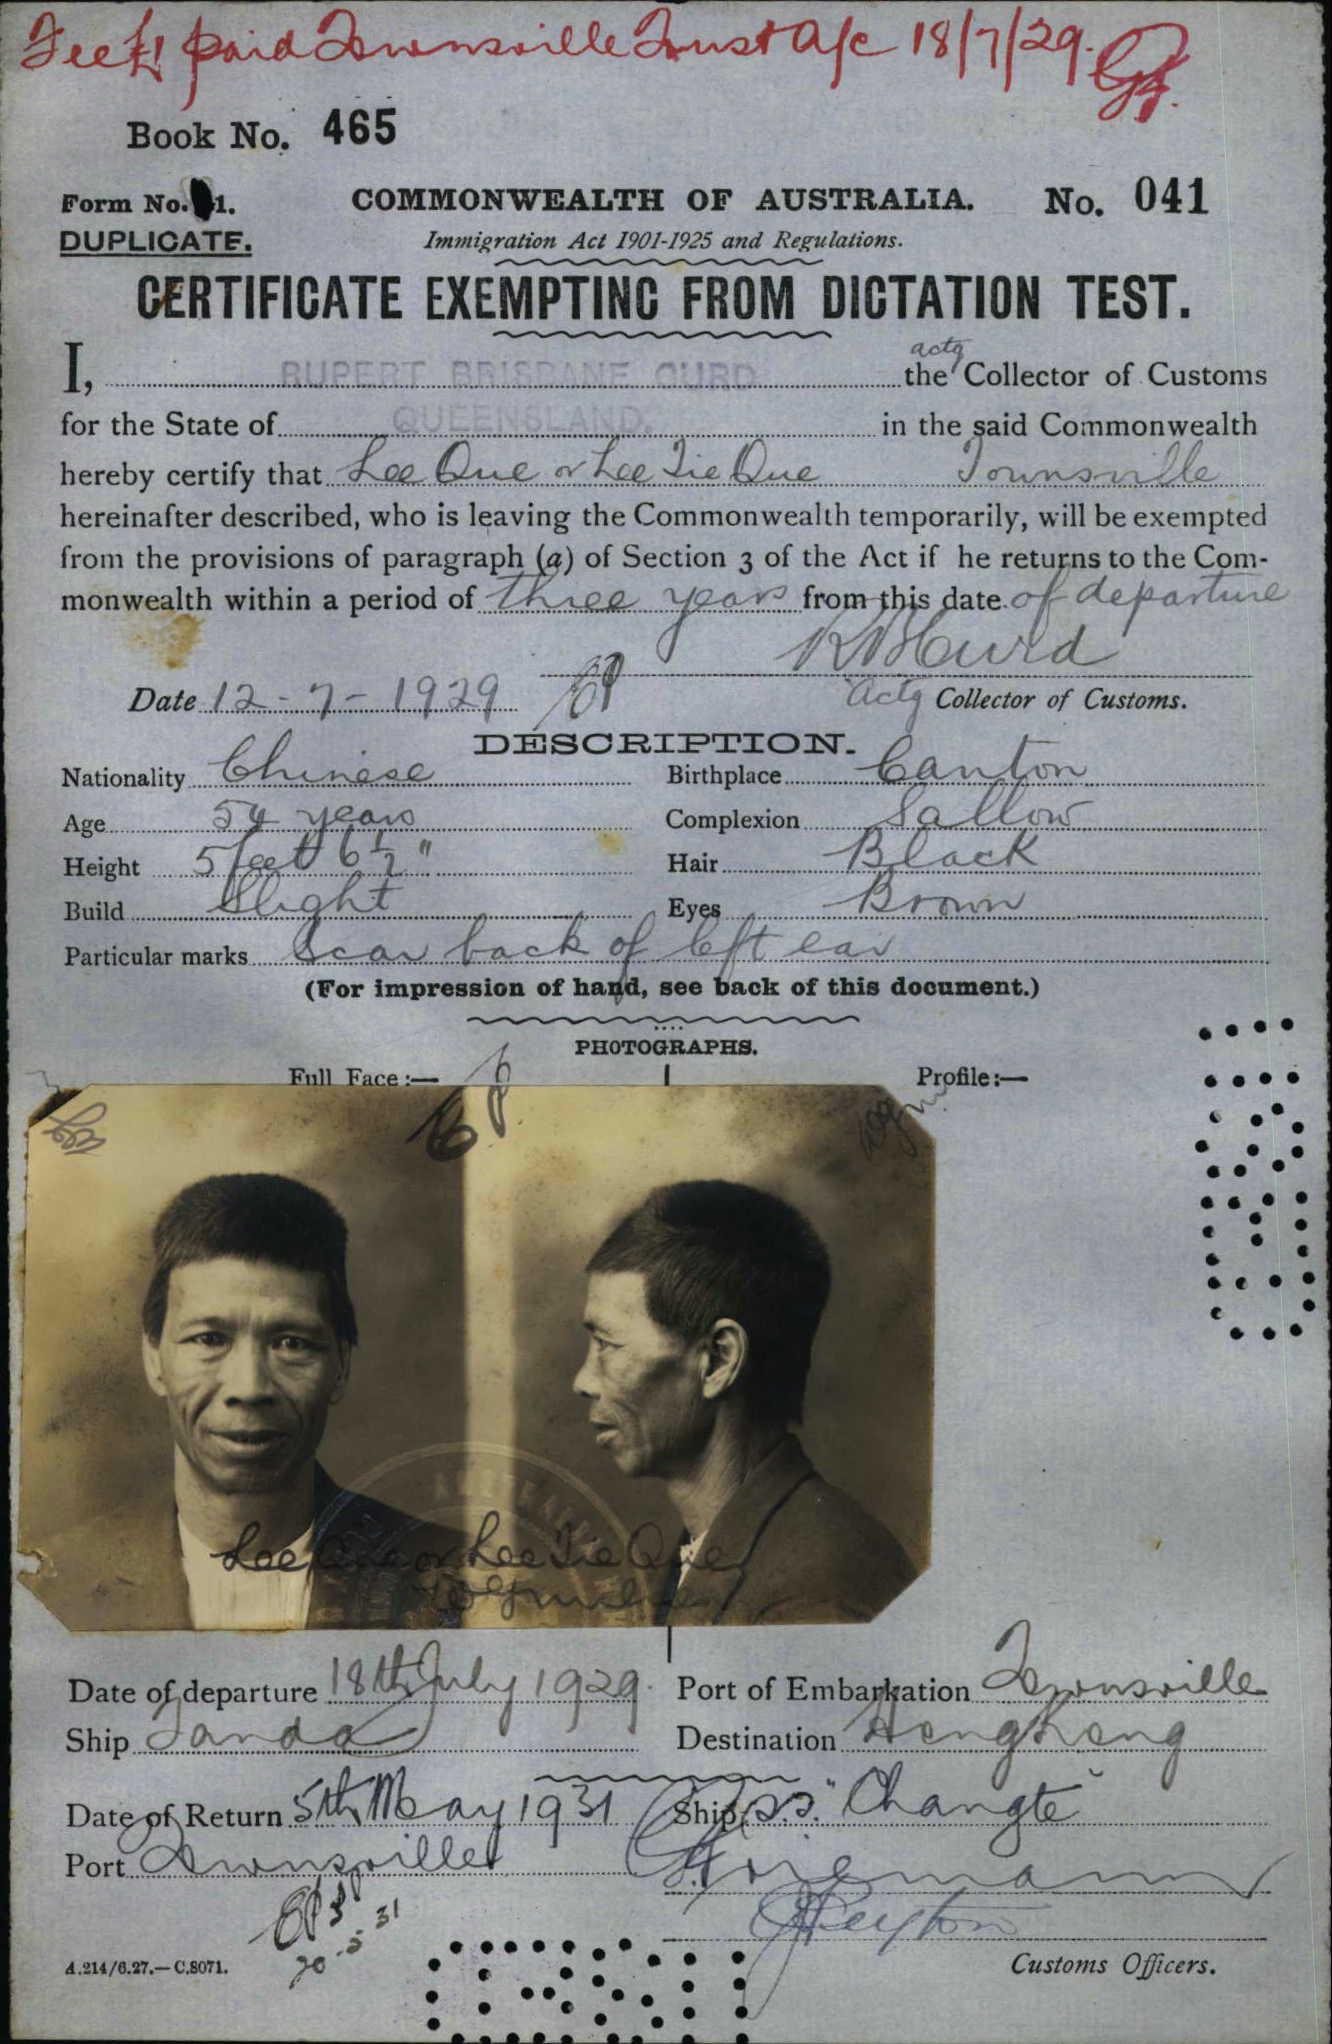 Fee £1 paid Townsville Trust A/c 18/7/29.
Book No. 465
Form No. 1.
COMMONWEALTH OF AUSTRALIA.
No. 041
DUPLICATE.
Immigration Act 1901-1925 and Regulations.
CERTIFICATE EXEMPTING FROM DICTATION TEST.
I, RUPERT BRISBANE CURD the actg Collector of Customs
for the State of QUEENSLAND. in the said Commonwealth
hereby certify that Lee Que or Lee Tie Que Townsville
hereinafter described, who is leaving the Commonwealth temporarily, will be exempted
from the provisions of paragraph (a) of Section 3 of the Act if he returns to the Com-
monwealth within a period of three years from this date of departure
R B Curd
Date 12-7-1929
Actg Collector of Customs.
DESCRIPTION.
Nationality Chinese Birthplace Canton
Age 54 years Complexion Sallow
Height 5 feet 6 1/2" Hair Black
Build Slight Eyes Brown
Particular marks Scar back of left ear
(For impression of hand, see back of this document.)
PHOTOGRAPHS.
Full Face:— Profile:—
Lee Que or Lee Tie Que
Date of departure 18th July 1929. Port of Embarkation Townsville
Ship Tanda Destination Hengkong
Date of Return 5th May 1931 Ship S.S. "Changte"
Port Townsville
20.5.31
A.214/6.27.—C.8071.
Customs Officers.